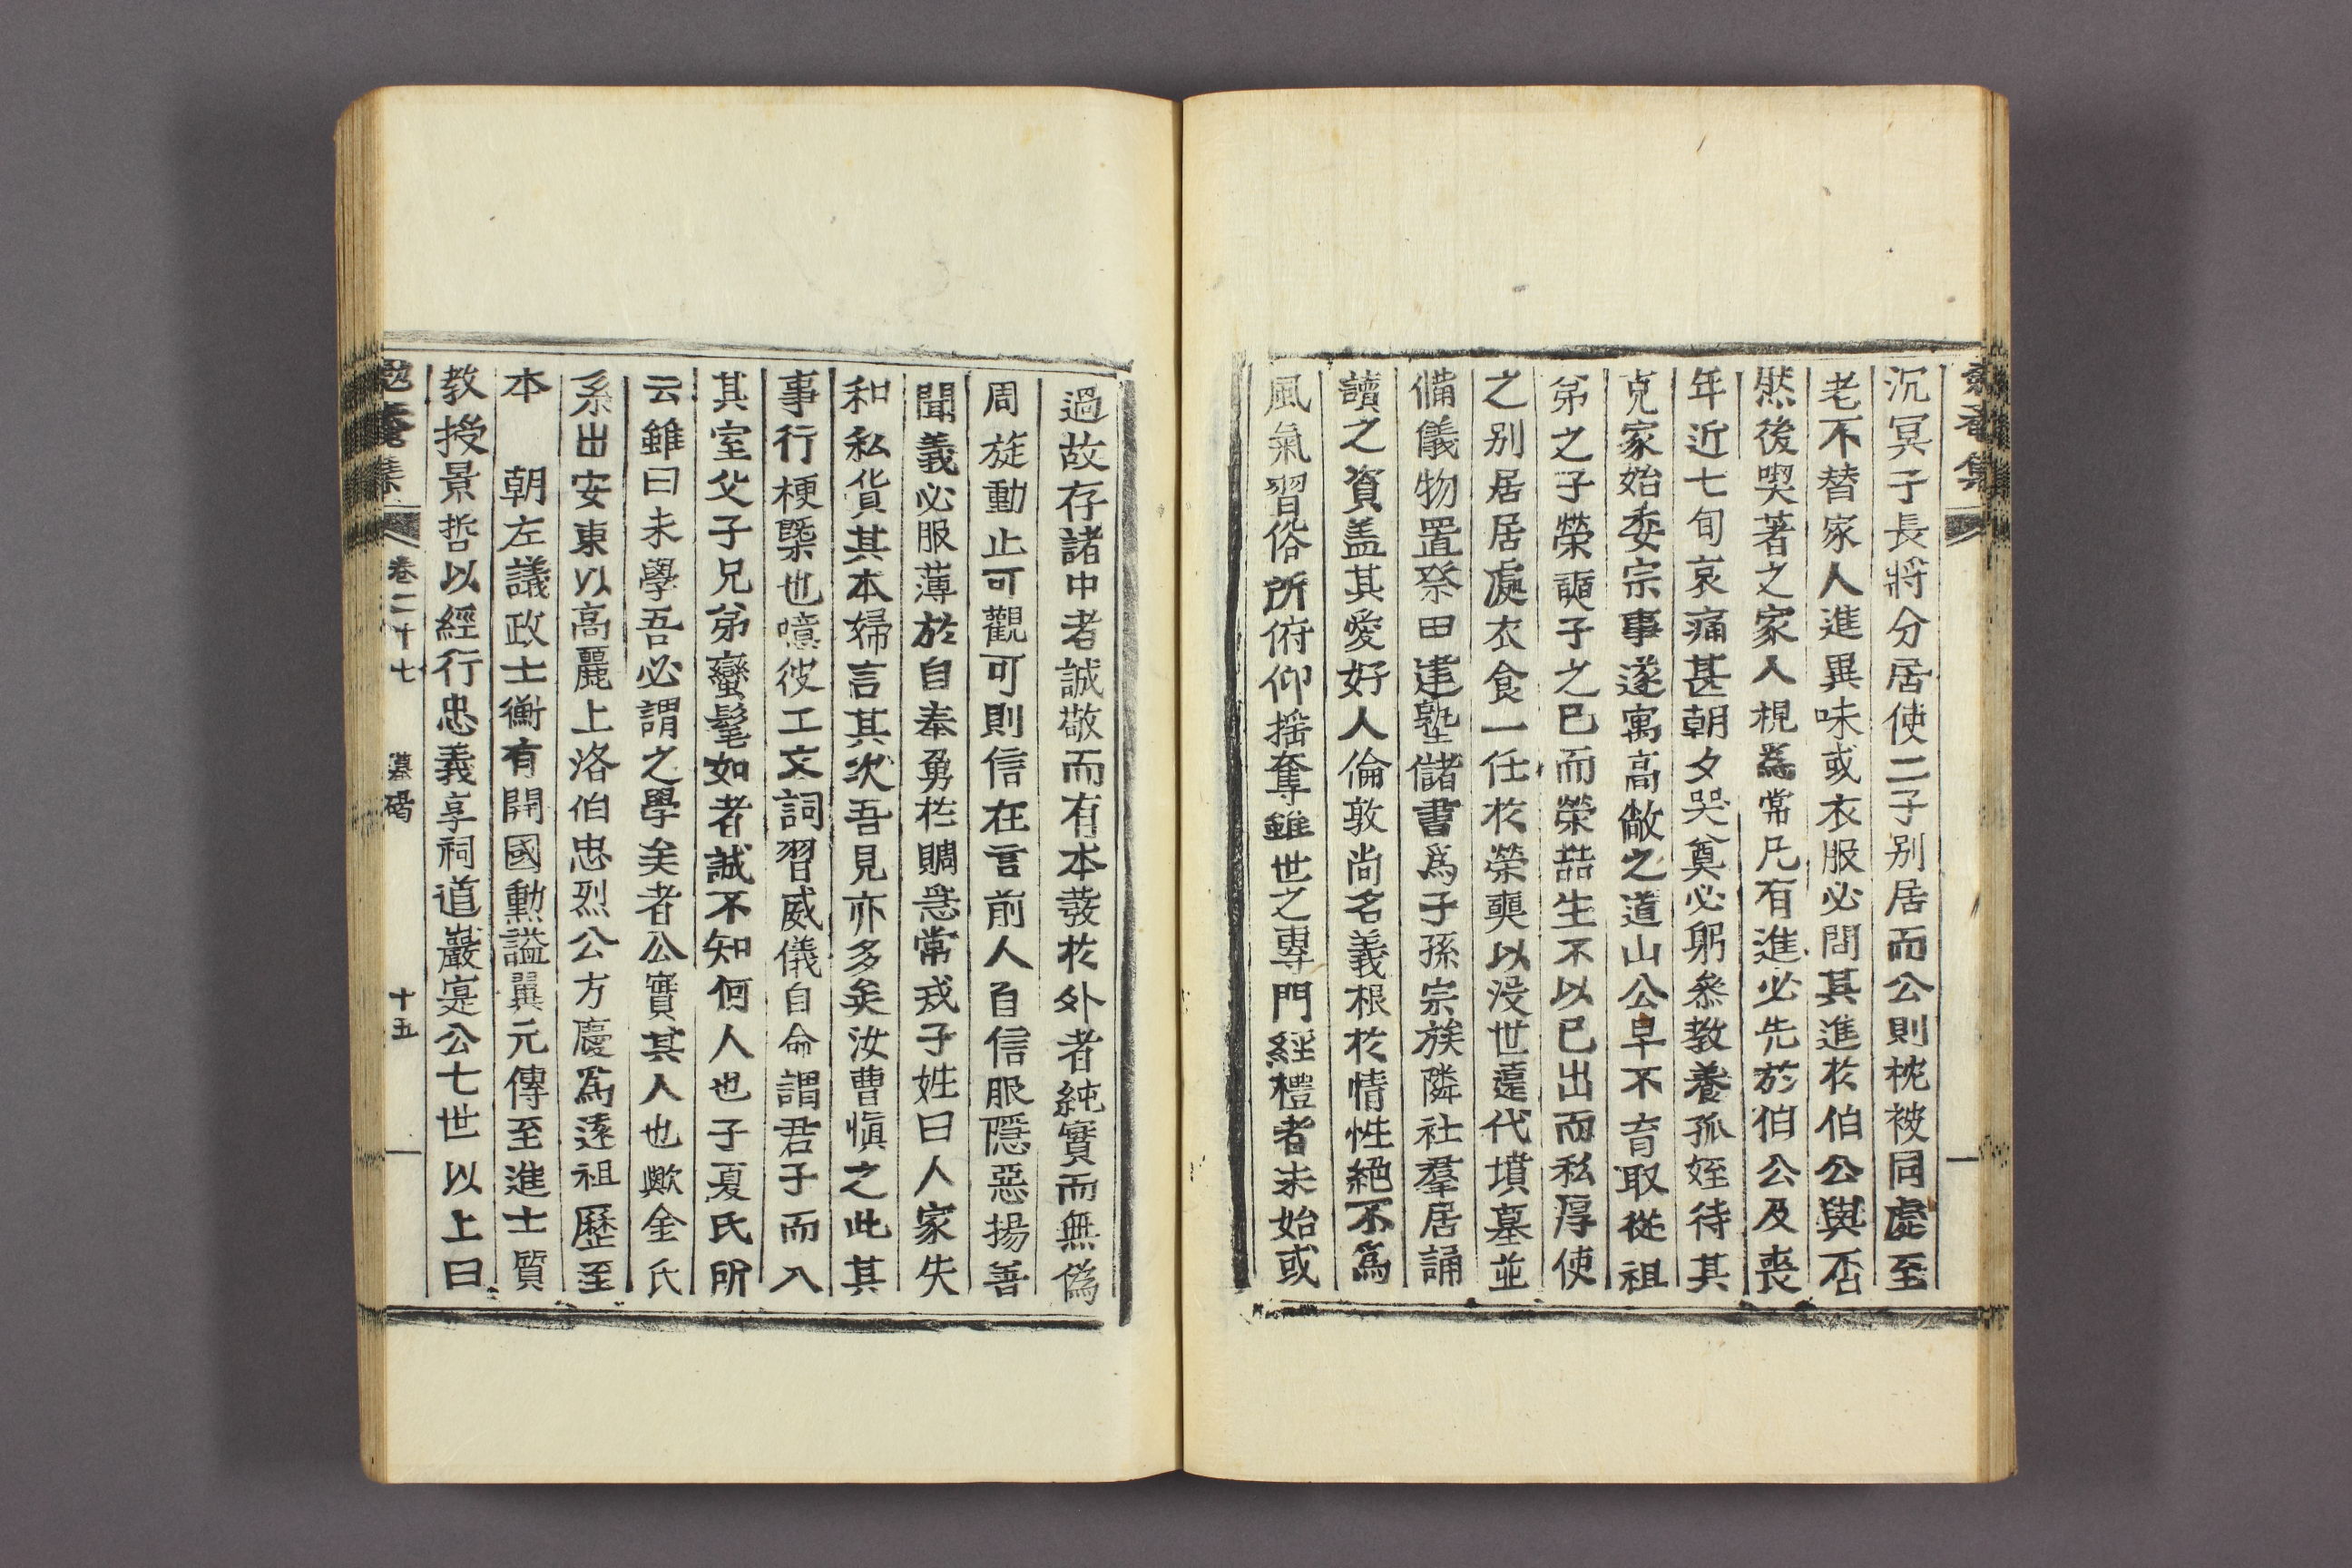 沉冥子長將分居使二子别居而公則枕被同處至
老不替家人進異味或衣服必問其進於伯公與否
然後喫著之家人視爲常凡有進必先於伯公及喪
年近七旬哀痛甚朝夕哭奠必躬叅教養孤姪待其
克家始委宗事遂寓高敞之道山公早不育取從祖
弟之子榮奭子之已而榮喆生不以已出而私厚使
之别居居處衣食一任於榮奭以没世遠代墳墓並
備儀物置祭田建塾儲書爲子孫宗族隣社羣居誦
讀之資盖其愛好人倫敦尚名義根於情性絕不爲
風氣習俗所俯仰搖奪雖世之專門經禮者未始或
過故存諸中者誠敬而有本發於外者純實而無僞
周旋動止可觀可則信在言前人自信服隱惡揚善
聞義必服薄於自奉勇於賙急常戒子姓曰人家失
和私貨其本婦言其次吾見亦多矣汝曹愼之此其
事行梗槩也噫彼工文詞習威儀自命謂君子而入
其室父子兄弟蠻髦如者誠不知何人也子夏氏所
云雖曰未學吾必謂之學矣者公實其人也歟金氏
系出安東以高麗上洛伯忠烈公方慶爲遠祖歷至
本 朝左議政士衡有開國勳謚翼元傳至進士質
教授景哲以經行忠義享祠道巖寔公七世以上曰
勉菴集 卷二十七 墓碣 十五